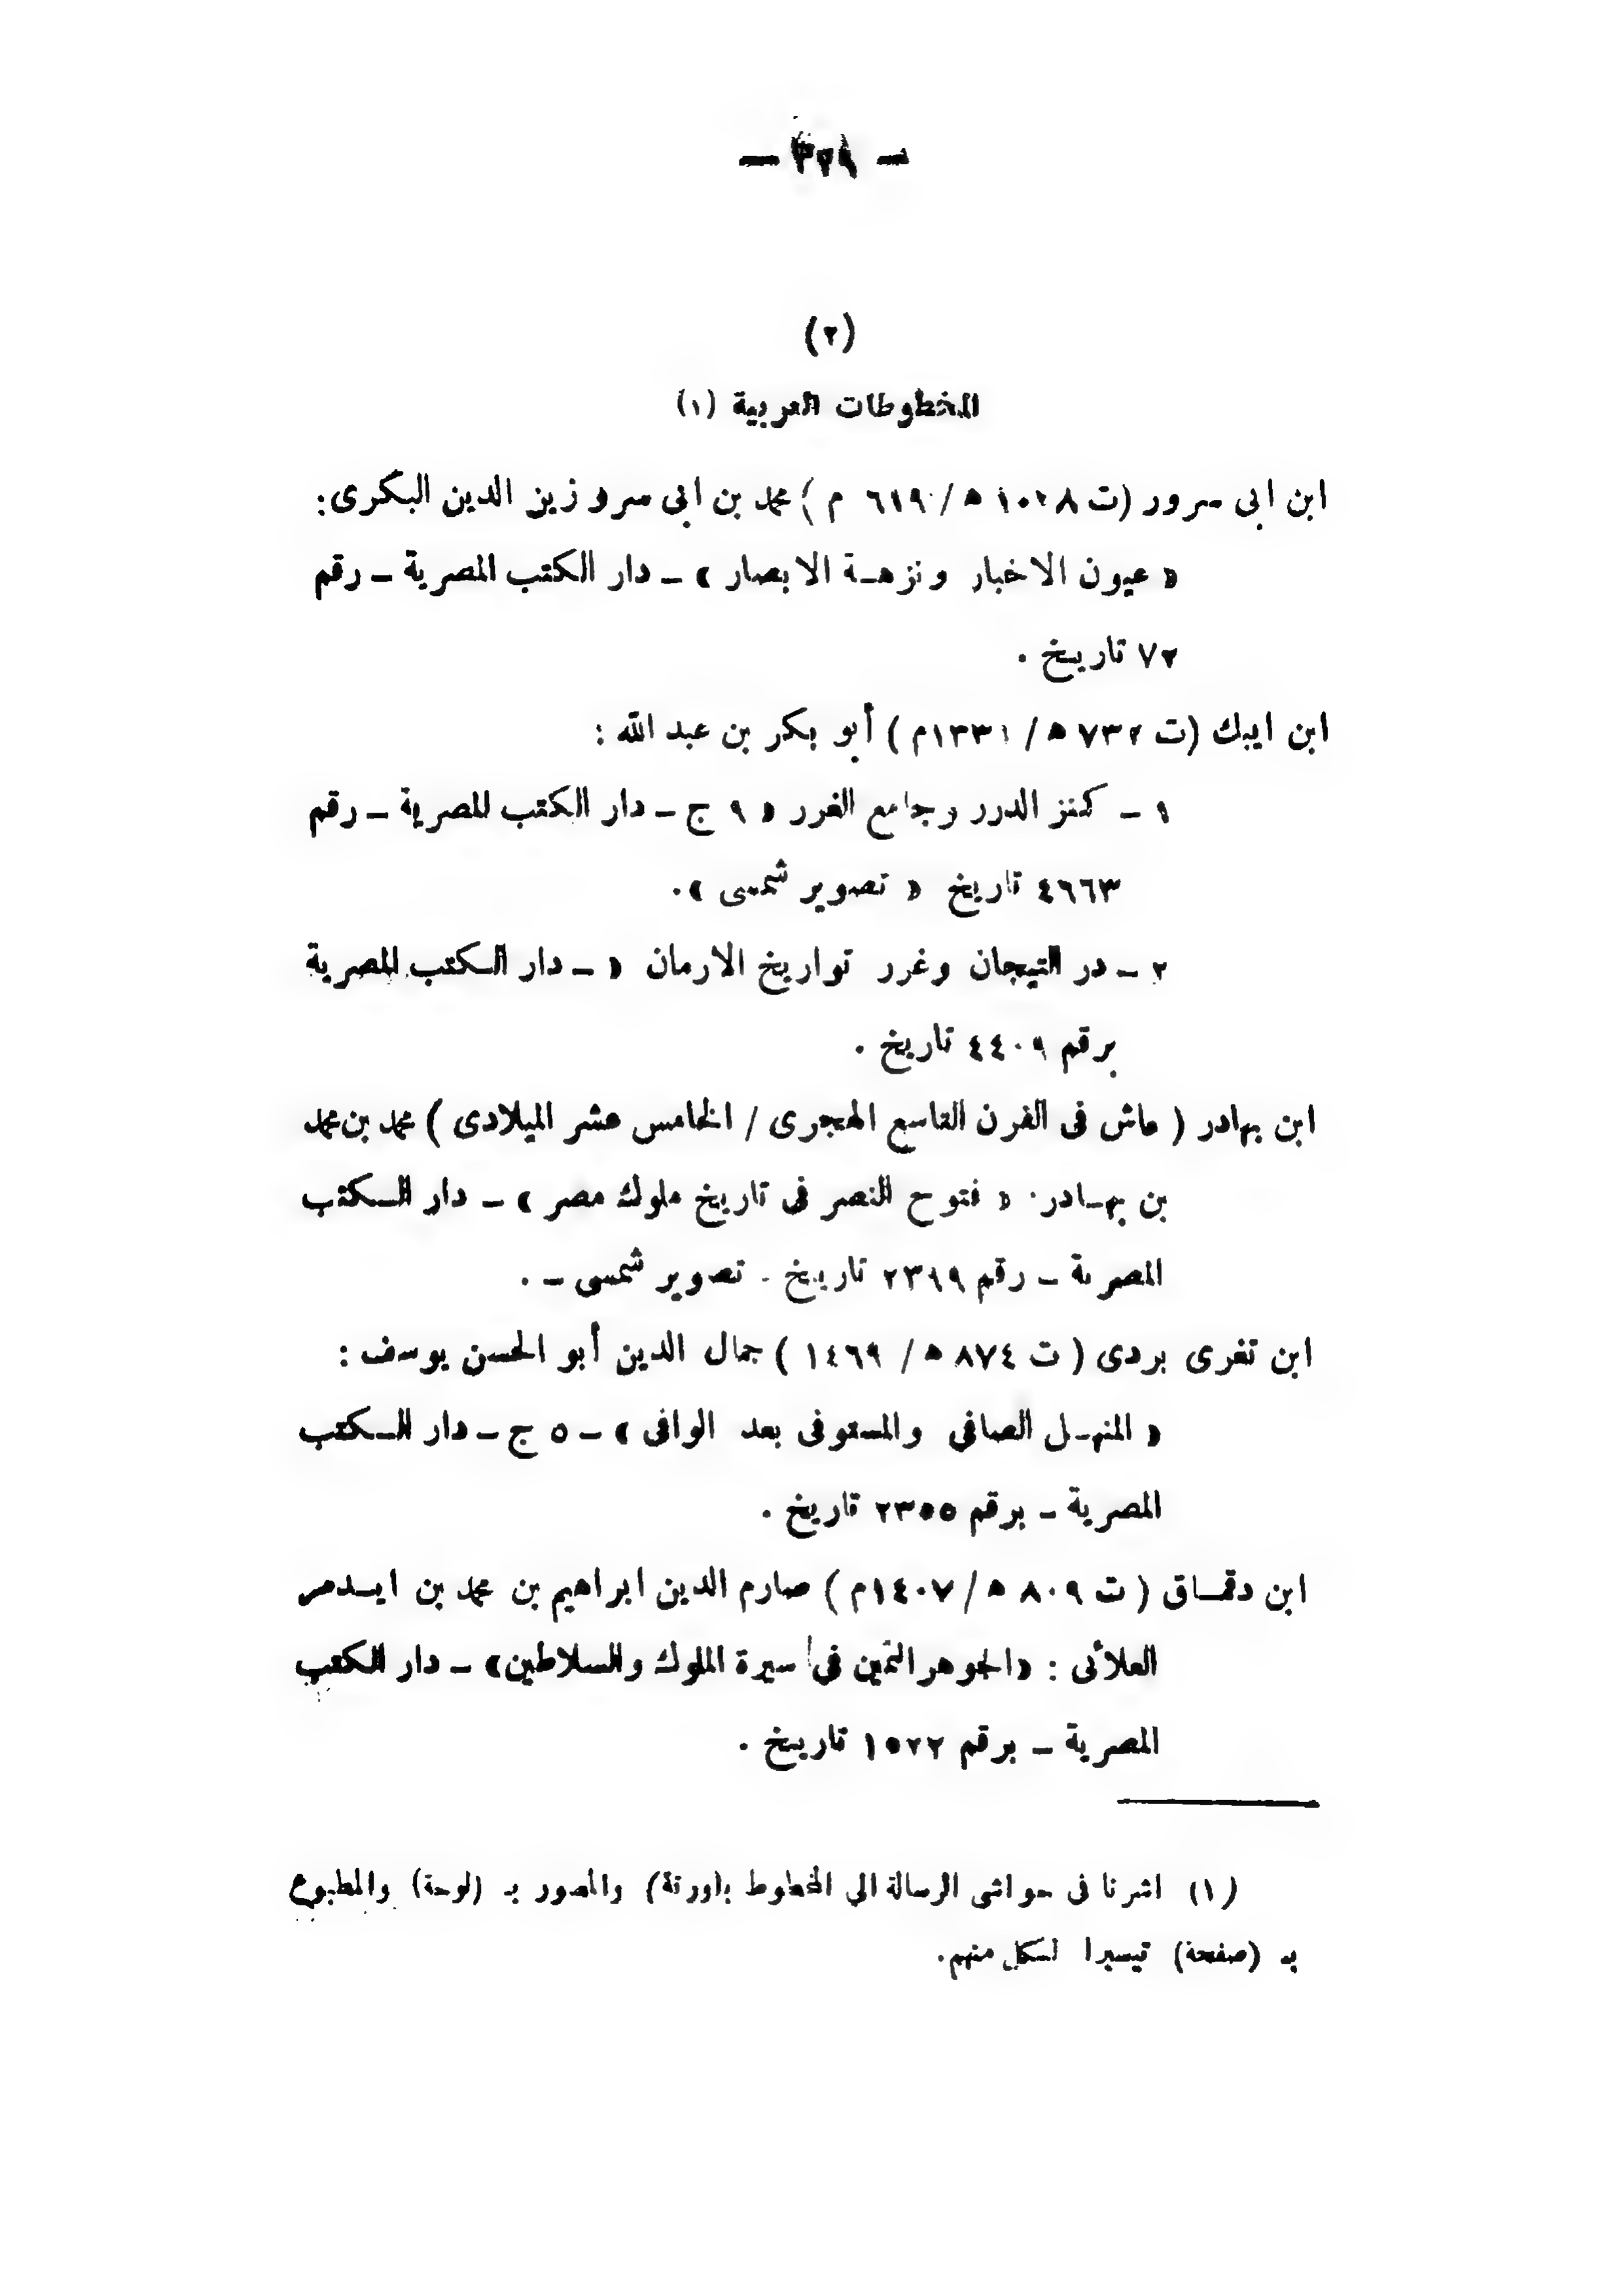 — ٣٢٩ —
(٢)
المخطوطات العربية (١)
ابن ابى سرور (ت ١٠٢٨ ه / ٦١٩ م) محمد بن ابى سرو زين الدين البكرى:
« عيون الاخبار ونزهـة الابصار » — دار الكتب المصرية — رقم
٧٢ تاريخ .
ابن ايبك (ت ٧٣٢ ه / ١٣٣١م) أبو بكر بن عبد الله :
١ — كنز الدرر وجامع الغرر « ٩ ج — دار الكتب المصرية — رقم
٤٦٦٣ تاريخ « تصوير شمسى ».
٢ — در التيجان وغرر تواريخ الارمان « — دار الكتب المصرية
برقم ٤٤٠٩ تاريخ .
ابن بهادر ( عاش فى القرن التاسع الهجرى / الخامس عشر الميلادى ) محمد بن محمد
بن بهـادر. « فتوح النصر فى تاريخ ملوك مصر » — دار الكتب
المصرية — رقم ٢٣٩٩ تاريخ - تصوير شمسى — .
ابن تغرى بردى ( ت ٨٧٤ ه / ١٤٦٩ ) جمال الدين أبو الحسن يوسف :
« المنهـل الصافي والمستوفى بعد الوافى » — ٥ ج — دار الكتب
المصرية — برقم ٢٣٥٥ تاريخ .
ابن دقمـاق ( ت ٨٠٩ ه / ١٤٠٧م ) صارم الدين ابراهيم بن محمد بن ايـدمر
العلائى : «الجوهر الثمين في سيرة الملوك والسلاطين» — دار الكتب
المصرية — برقم ١٥٢٢ تاريخ .
(١) اشرنا فى حواشى الرسالة الي المخطوط ب(ورقة) والمصور بـ (لوحة) والمطبوع
بـ (صفحة) تيسيرا لكل منهم.